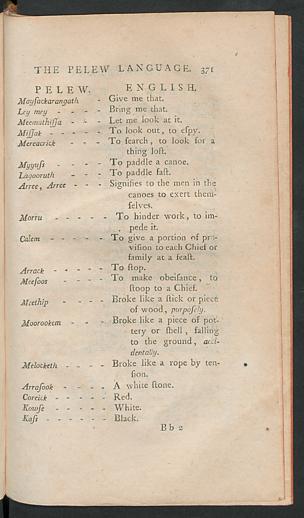 THE PELEW LANGUAGE. 371
PELEW. ENGLISH.
Mayſackarangath - Give me that.
Ley mey - - - - Bring me that.
Meemathiſſa - - Let me look at it.
Miſſak - - - - - To look out, to eſpy.
Mereacrick - - - To ſearch, to look for a
thing loſt.
Myguſs - - - To paddle a canoe.
Lagooruth - - - To paddle faſt.
Arree, Arree - - - Signifies to the men in the
canoes to exert them-
ſelves.
Morru - - - - - To hinder work, to im-
pede it.
Calem - - - - - To give a portion of pro-
viſion to each Chief or
family at a feaſt.
Arrack - - - - - To ſtop.
Meeſoos - - - - To make obeiſance, to
ſtoop to a Chief.
Meethip - - - - Broke like a ſtick or piece
of wood, purpoſely.
Moorookem - - - Broke like a piece of pot-
tery or ſhell, falling
to the ground, acci-
dentally.
Melocketh - - - Broke like a rope by ten-
ſion.
Arraſook - - - - A white ſtone.
Coreick - - - - - Red.
Kowſe - - - - - White.
Kaſt - - - - - - Black.
B b 2